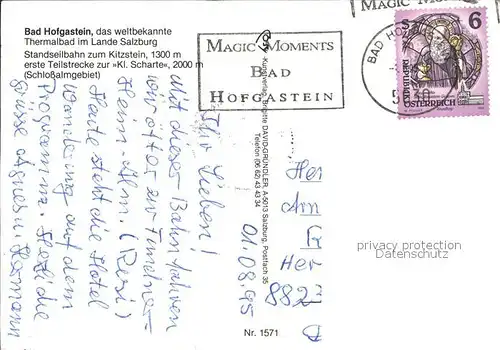 Bad Hofgastein, das weltbekannte
Thermalbad im Lande Salzburg
Standseilbahn zum Kitzstein, 1300 m
erste Teilstrecke zur »Kl. Scharte«, 2000 m
(Schloßalmgebiet)
MAGIC MOMENTS
BAD
HOFGASTEIN
MAGIC MO
BAD HO
6
REPUBLIK
ÖSTERREICH
01.08.95
Ihr Lieben!
Mit dieser Bahn fahren
wir öfter zur
Heim-Alm (Resi)
Heute steht die Hotel
wanderung auf dem
Programm. Herzliche
Grüsse Agnes u. Hermann
Brigitte DAVID-GRÜNDLER, A-5013 Salzburg, Postfach 35
Telefon (06 62) 43 43 34
Her
Am
Her
882
privacy protection
Datenschutz
Nr. 1571